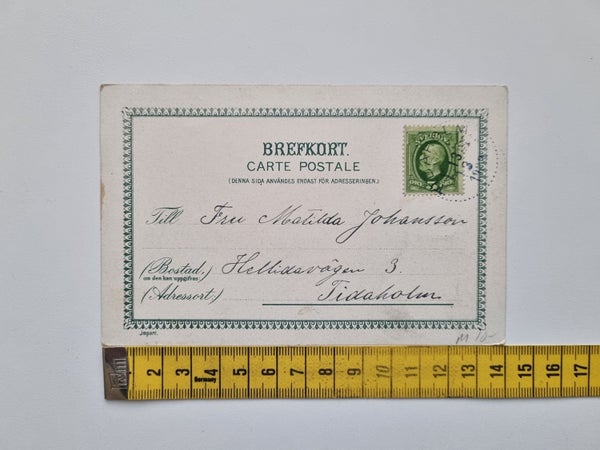 BREFKORT.
CARTE POSTALE
(DENNA SIDA ANVÄNDES ENDAST FÖR ADRESSERINGEN.)
SVERIGE
Till Fru Matilda Johansson
(Bostad.) Hellidsvägen 3.
om den kan uppgifvas
(Adressort.) Tidaholm
Import.
M 10-
2 3 4 5 6 7 8 9 10 11 12 13 14 15 16 17
Germany